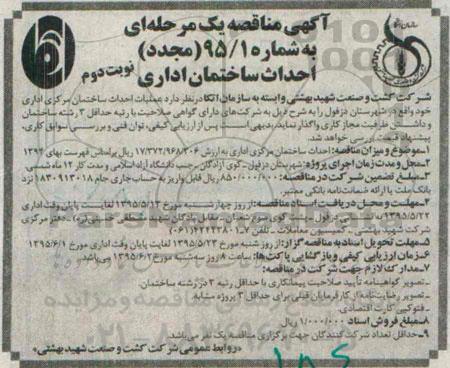 آگهی مناقصه یک مرحله‌ای
به شماره ۹۵/۱ (مجدد)
احداث ساختمان اداری
نوبت دوم
شرکت کشت و صنعت شهید بهشتی وابسته به سازمان اتکا در نظر دارد عملیات احداث ساختمان مرکزی اداری
خود واقع در شهرستان دزفول را به شرح ذیل به شرکت‌های دارای گواهی صلاحیت با رتبه حداقل ۳ رشته ساختمان
و داشتن ظرفیت مجاز کاری واگذار نماید. بدیهی است پس از ارزیابی کیفی، توان فنی و بررسی سوابق کاری،
پیشنهاد قیمت بررسی خواهد شد.
۱-موضوع و میزان مناقصه: احداث ساختمان مرکزی اداری به ارزش ۱۷/۳۷۲/۹۶۸/۳۰۶ ریال براساس فهرست بهای ۱۳۹۴
۲-محل و مدت زمان اجرای پروژه: شهرستان دزفول-کوی آزادگان-جنب دانشگاه آزاد اسلامی و مدت کار ۱۲ ماه شمسی
۳-مبلغ تضمین شرکت در مناقصه: ۸۵۰/۰۰۰/۰۰۰ ریال قابل واریز به حساب جاری جام ۱۸۳۰۹۱۳۰۱۸ نزد
بانک ملت یا ارائه ضمانت‌نامه بانکی معتبر
۴-مهلت و محل دریافت اسناد مناقصه: از روز چهارشنبه مورخ ۱۳۹۵/۵/۱۳ لغایت پایان وقت اداری مورخ
۱۳۹۵/۵/۲۲ به نشانی دزفول- -مقابل پادگان شهید مصطفی خمینی(ره) -دفتر مرکزی
شرکت شهید بهشتی -کمیسیون معاملات- تلفن ۷-۴۲۲۲۳۸۰۱(۰۶۱)
۵-مهلت تحویل اسناد به مناقصه گزار: از روز شنبه مورخ ۱۳۹۵/۵/۲۳ لغایت پایان وقت اداری مورخ ۱۳۹۵/۶/۱
۶-زمان ارزیابی کیفی و بازگشایی پاکت‌ها: ساعت ۸ روز سه‌شنبه مورخ ۱۳۹۵/۶/۲ می‌باشد.
۷-مدارک لازم جهت شرکت در مناقصه:
-تصویر گواهینامه تأیید صلاحیت پیمانکاری با حداقل رتبه ۳ در رشته ساختمان
-تصویر رضایت‌نامه از کارفرمایان قبلی برای حداقل ۳ پروژه مشابه
-فتوکپی کارت اقتصادی
۸-مبلغ فروش اسناد ۱/۰۰۰/۰۰۰ ریال
۹-حداقل تعداد شرکت کنندگان جهت برگزاری مناقصه یک نفر می‌باشد.
«روابط عمومی شرکت کشت و صنعت شهید بهشتی»